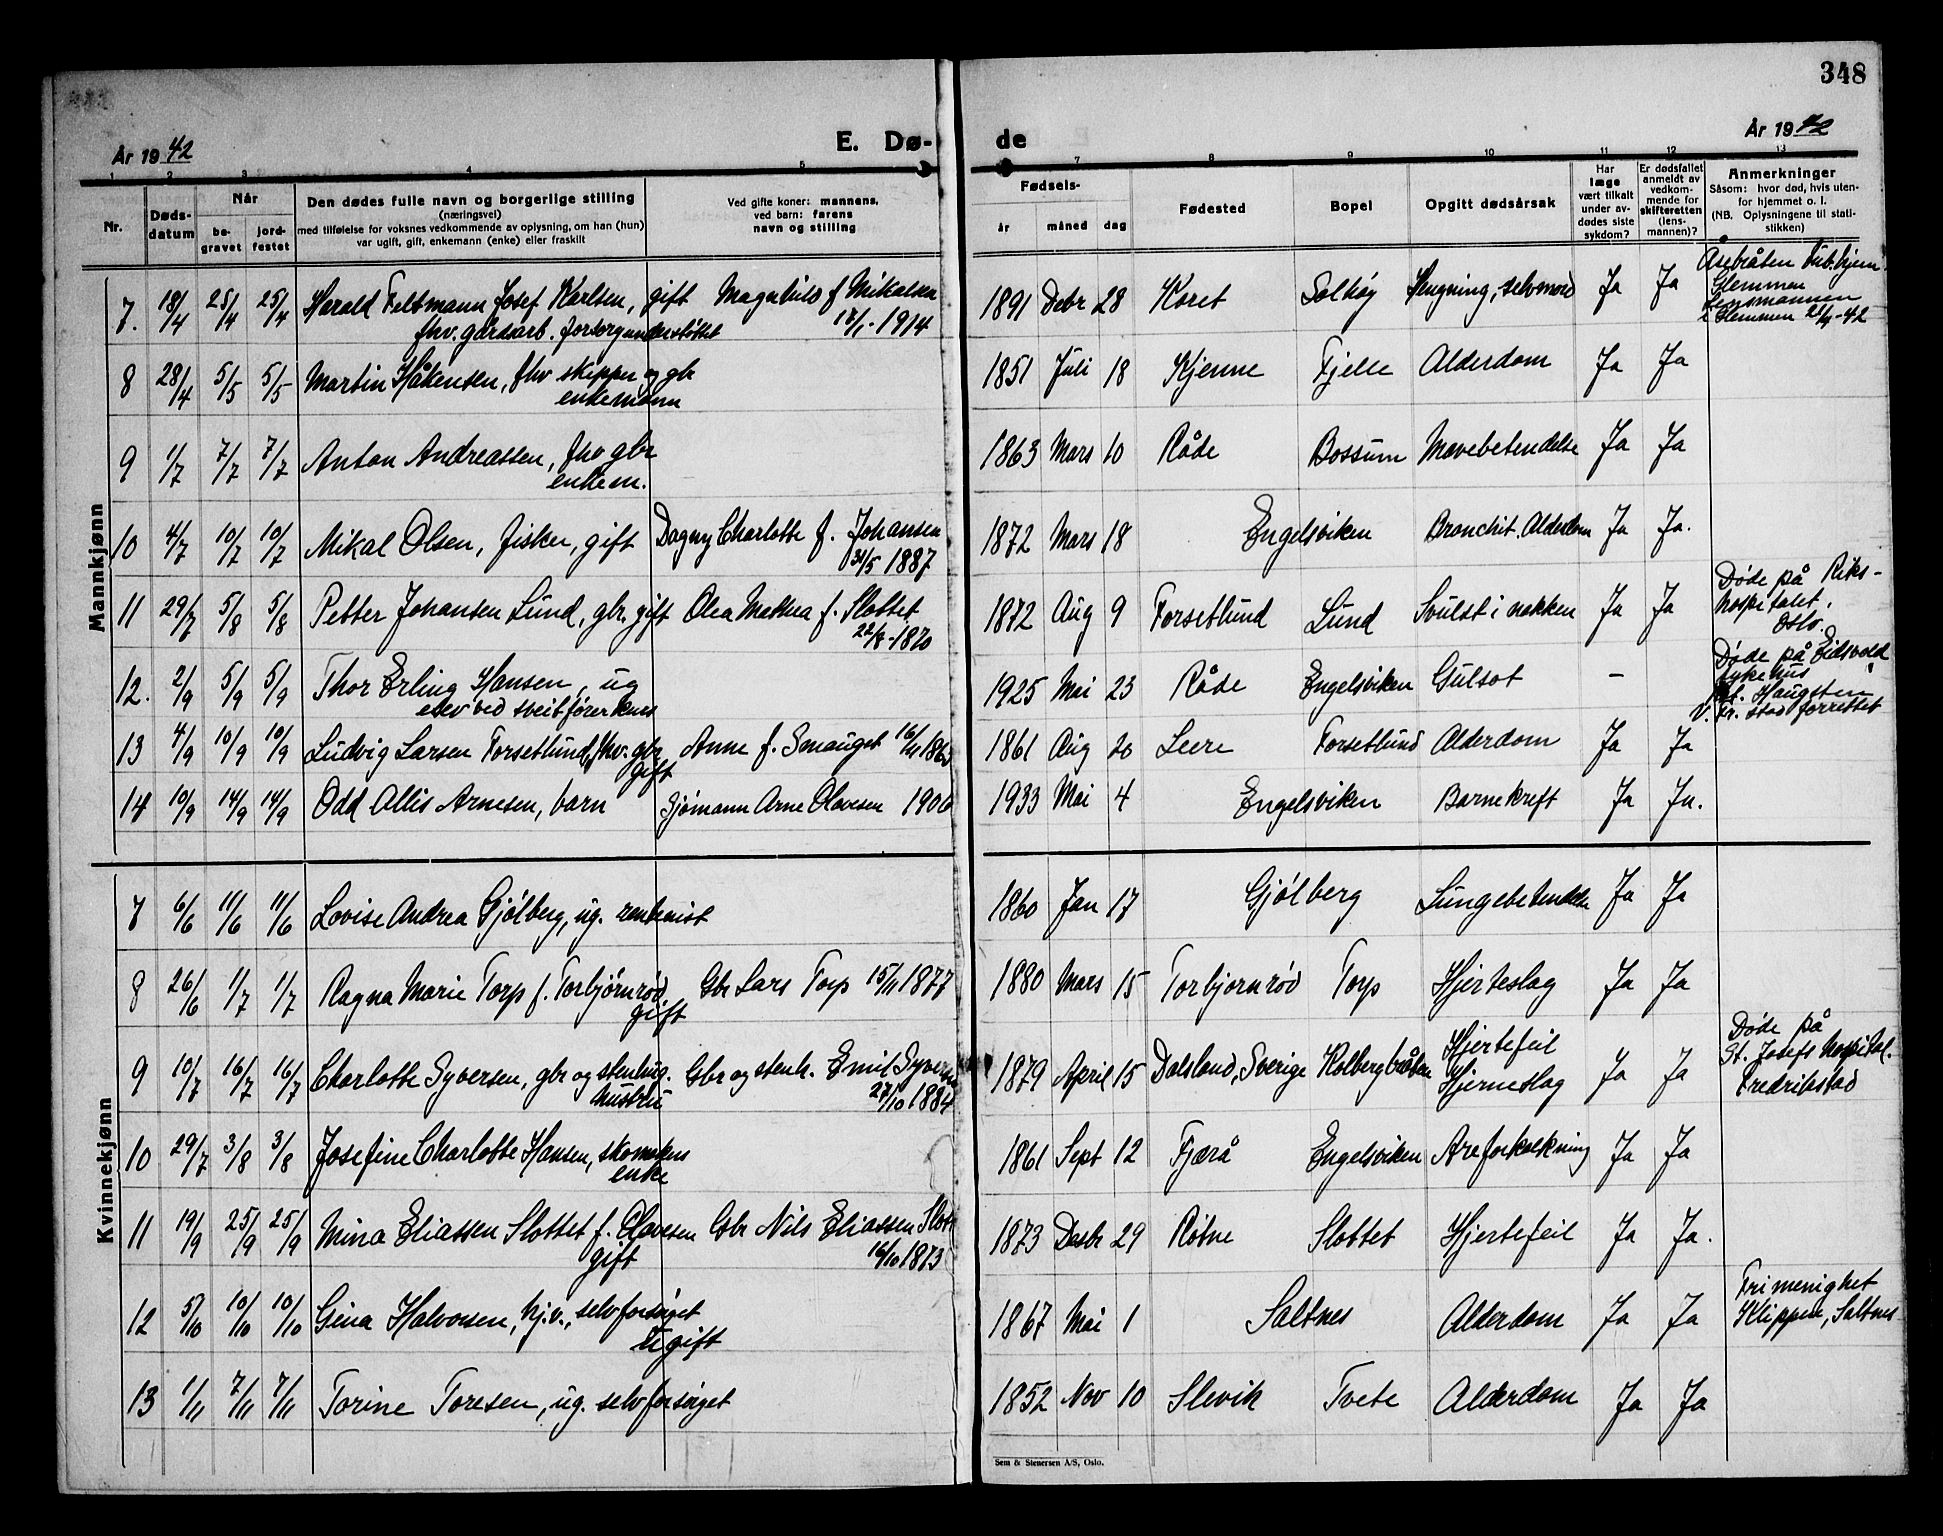 348
År 1942
E. Dø-
de
År 1942
1 2 3 4 5 7 8 9 10 11 12 13
Nr.
Døds-
datum
Når
be-
gravet
jord-
festet
Den dødes fulle navn og borgerlige stilling
(næringsvei)
med tilføielse for voksnes vedkommende av oplysning, om han (hun)
var ugift, gift, enkemann (enke) eller fraskilt
Ved gifte koner: mannens,
ved barn: farens
navn og stilling
Fødsels-
år måned dag
Fødested
Bopel
Opgitt dødsårsak
Har
læge
vært tilkalt
under av-
dødes siste
sykdom?
Er dødsfallet
anmeldt av
vedkom-
mende for
skifteretten
(lens-
mannen)?
Anmerkninger
Såsom: hvor død, hvis uten-
for hjemmet o. l.
(NB. Oplysningene til stati-
stikken)
Mannkjønn
7. 18/4 25/4 25/4 Harald Feltmann Josef Karlsen, gift f Mikalsen 1891 Debr 28 Koret Solhøy Hengning, selvmord Ja Ja Åsebråten
fhv. gårdsarb. forsorgsunderstöttet 1914 Glemmen
Lensmannen
i Glemmen 28/4-42
8 28/4 5/5 5/5 Martin Håkensen, fhv skipper og gbr 1851 Juli 18 Kjenne Fjelle Alderdom Ja Ja
enkemann
9 1/7 7/7 7/7 Anton Andreassen, fhv gbr 1863 Mars 10 Råde Bossum Mavebetendelse Ja Ja
enkem.
10 4/7 10/7 10/7 Mikal Olsen, fisker, gift Dagny Charlotte f. Johansen 1872 Mars 18 Engelsviken Bronchit. Alderdom Ja Ja.
31/5 1887
11 29/7 5/8 5/8 Petter Johansen Lund, gbr, gift Olea Mathea f. Slottet 1872 Aug 9 Forsetlund Lund Svulst i nakken Ja Ja Døde på Riks-
22/8-1870 hospitalet.
Oslo.
12. 2/9 5/9 5/9 Thor Erling Hansen, ug 1925 Mai 23 Råde Engelsviken Gulsot – Døde på Eidsvold
elev ved sykehus
Haugsten
v. Fr. stad forrettet
13 4/9 10/9 10/9 Ludvig Larsen Forsetlund, fhv. gbr Anne f. Smauget 1861 Aug 20 Leere Forsetlund Alderdom Ja Ja
gift
14 10/9 14/9 14/9 Odd Allis Arnesen, barn Sjömann Arne Olavesen 1906 1933 Mai 4 Engelsviken Barnekreft Ja Ja.
Kvinnekjønn
7 6/6 11/6 11/6 Lovise Andrea Gjølberg, ug. rentenist 1860 Jan 17 Gjølberg Lungebetendelse Ja Ja
8 26/6 1/7 1/7 Ragna Marie Torp f. Torbjørnrød. Gbr Lars Torp 15/11 1877 1880 Mars 15 Torbjørnrød Torp Hjerteslag Ja Ja
gift
9 10/7 16/7 16/7 Charlotte Syversen, gbr og stenhug. Gbr og stenh. Emil Syversen 1879 April 15 Dalsland, Sverige Kolbergbråten Hjertefeil Ja Ja Døde på
hustru 27/10 1884 Hjerneslag St. Josefs hospital.
Fredrikstad
10 29/7 3/8 3/8 Josefine Charlotte Hansen, skomakers 1861 Sept 12 Fjærå Engelsviken Areforkalkning Ja Ja
enke
11 19/9 25/9 25/9 Mina Eliassen Slottet f. Olavesen Gbr Nils Eliassen Slott 1873 Desbr 29 Røtne Slottet Hjertefeil Ja Ja.
gift 16/10 1873
12 5/10 10/10 10/10 Gina Halvorsen, hj.v., selvforsörget 1867 Mai 1 Saltnes Alderdom Ja Ja Fri menighet
Ugift Klippen, Saltnes
13 1/11 7/11 7/11 Torine Toresen, ug. selvforsörget 1852 Nov 10 Slevik Tvete Alderdom Ja Ja
Sem & Stenersen A/S, Oslo.